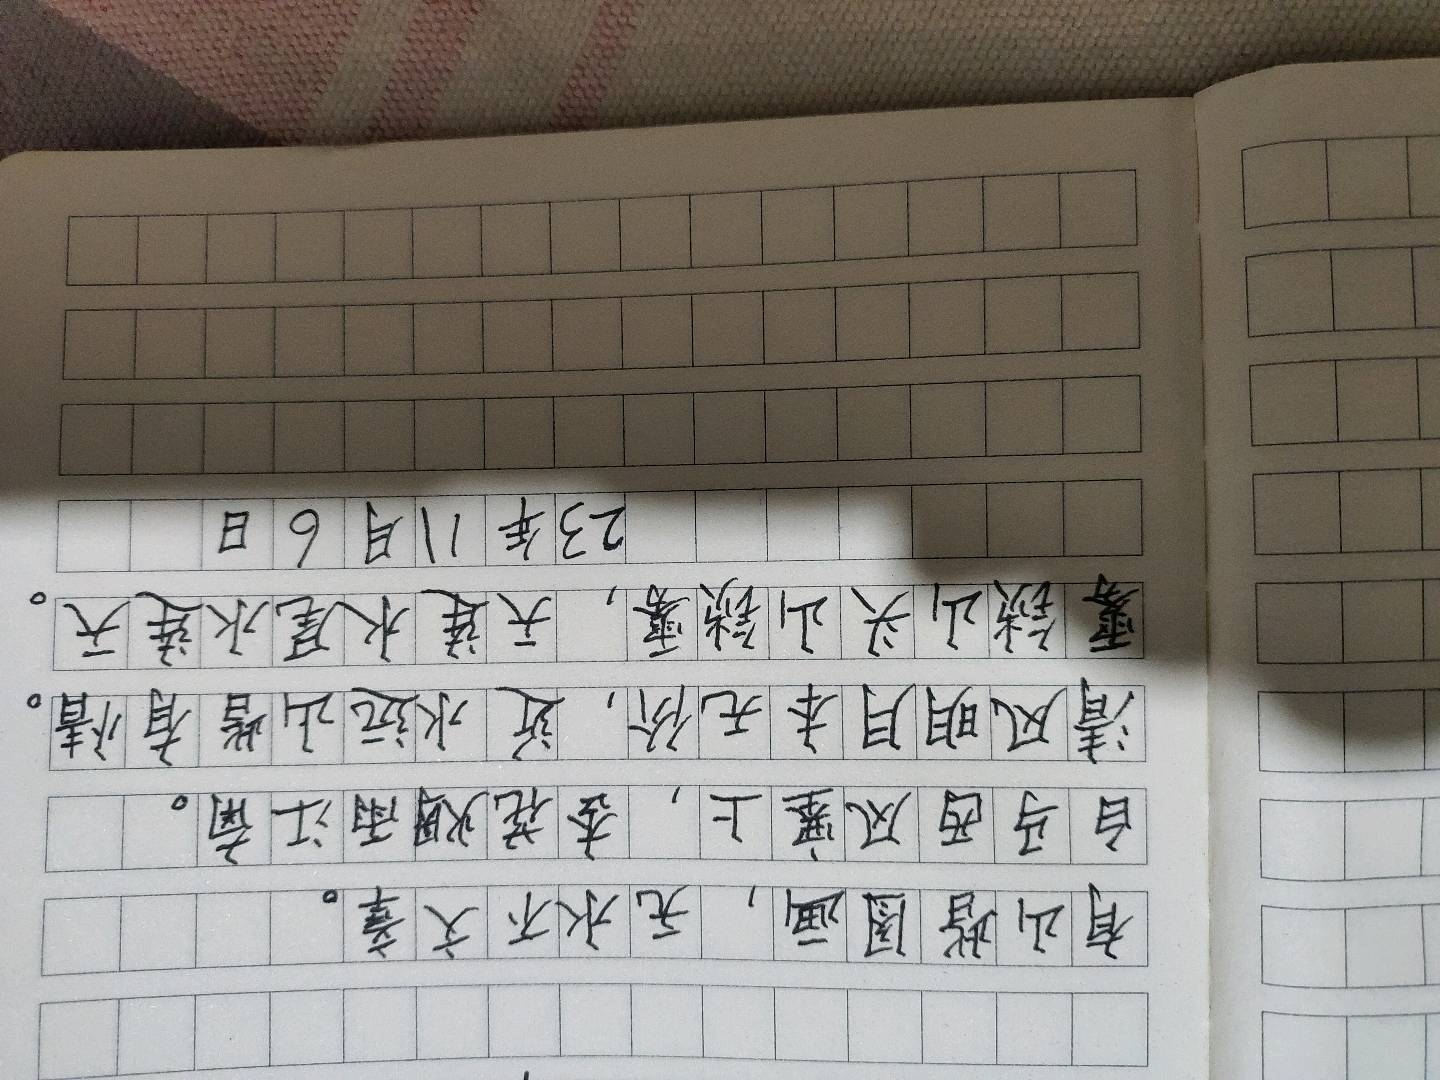 有山皆图画，无水不文章。
白马西风塞上，杏花烟雨江南。
清风明月本无价，近水远山皆有情。
雾锁山头山锁雾，天连水尾水连天。
23年11月6日